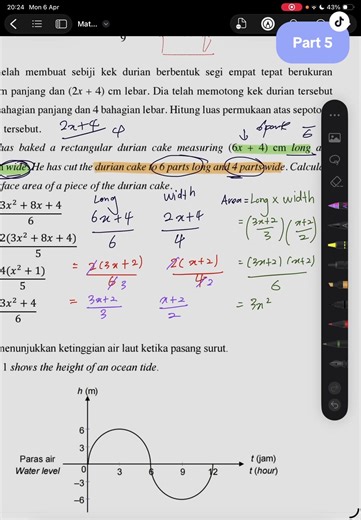 20:24 Mon 6 Apr
43%
Mat...
Part 5
elah membuat sebiji kek durian berbentuk segi empat tepat berukuran
m panjang dan (2x + 4) cm lebar. Dia telah memotong kek durian tersebut
ahagian panjang dan 4 bahagian lebar. Hitung luas permukaan atas sepoto
tersebut. 2x+4 4 6 part 6
has baked a rectangular durian cake measuring (6x + 4) cm long a
wide. He has cut the durian cake to 6 parts long and 4 parts wide. Calcul
face area of a piece of the durian cake.
3x² + 8x + 4)/6
2(3x² + 8x + 4)/5
4(x² + 1)/5
3x² + 4/6
Long width Area = Long x width
6x+4/6 2x+4/4 = (3x+2/3)(x+2/2)
= 2(3x+2)/6 3 = 2(x+2)/4 2 = (3x+2)(x+2)/6
= 3x+2/3 x+2/2 = 3x²
menunjukkan ketinggian air laut ketika pasang surut.
1 shows the height of an ocean tide.
h (m)
6
3
Paras air
Water level
0 3 6 9 12
t (jam)
t (hour)
−3
−6